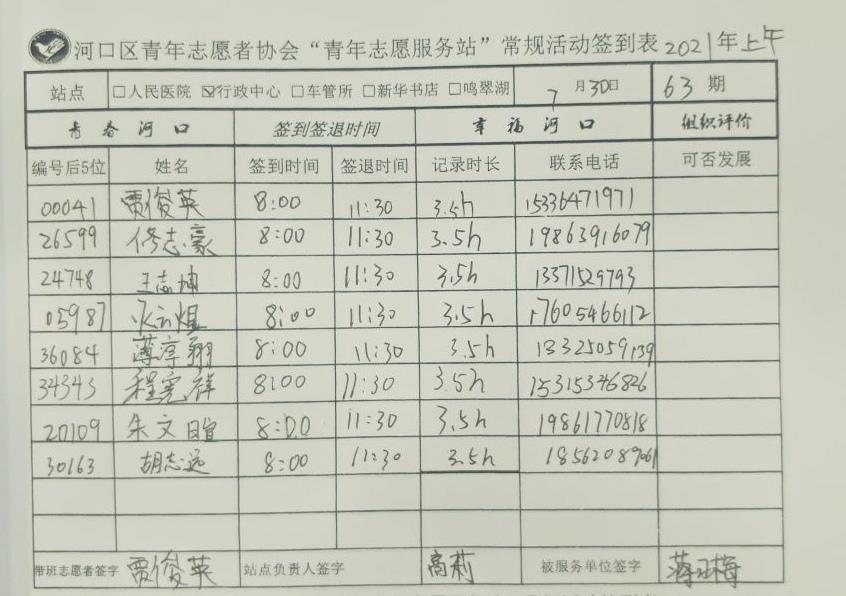 河口区青年志愿者协会“青年志愿服务站”常规活动签到表 2021年上午
站点 □人民医院 ☑行政中心 □车管所 □新华书店 □鸣翠湖 7月30日 63期
青春河口 签到签退时间 幸福河口 组织评价
编号后5位 姓名 签到时间 签退时间 记录时长 联系电话 可否发展
00041 贾俊英 8:00 11:30 3.5h 15336471971
26599 修志豪 8:00 11:30 3.5h 19863916079
24748 王志坤 8:00 11:30 3.5h 13371529793
05987 8:00 11:30 3.5h 17605466112
36084 薄淳翔 8:00 11:30 3.5h 13325059139
34343 程宪祥 8:00 11:30 3.5h 15315346826
20109 朱文暄 8:00 11:30 3.5h 19861770818
30163 胡志远 8:00 11:30 3.5h 18562089061
带班志愿者签字 贾俊英 站点负责人签字 高莉 被服务单位签字